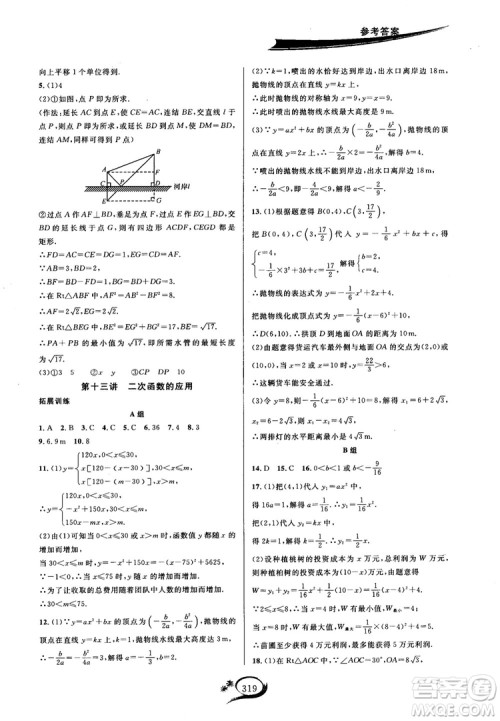 参考答案
向上平移1个单位得到.
5.(1)4
(2)①如图,点P即为所求.
(作法:延长AC到点E,使CE=AC,直线l于点D,连结BE,交直线l于点P,则点P即为所求,连结AP.同样可得点P)
A
B
C
D
P
E
F
G
树岸l
②过点A作AF⊥BD,垂足为点F,过点E作EG⊥BD,交BD的延长线于点G,则有四边形ACDF,CEGD都是矩形.
∴FD=AC=CE=DG=1,EG=CD=AF.
∵AB=3,∴BD=3.
∴BF=BD-FD=2,BG=BD+DG=4.
∴在Rt△ABF中,AF²=AB²-BF²=1.
∴在Rt△BEG中,BE=√(EG²+BG²)=√17.
∴PA+PB的最小值为√17,即所需水管的最短长度为√17.
(3)①3 5 ②x CP DP 10
第十三讲 二次函数的应用
拓展训练
A组
1.A 2.B 3.C 4.C 5.A 6.B 7.A 8.C
9.6.9m 10.8
11.(1)y={120x,0<x≤m,
x[120-(x-30)],x>m
={120x,0<x≤m,
-x²+150x,x>m.
(2)由(1)可知当0<x≤30或x>m,函数值y都随x的增加而增加.
当30<x≤m时,y=-x²+150x=-(x-75)²+5625.
∵-1<0,∴x≤75时,y随着x的增加而增加.
∴为了让收取的总费用随着团队中人数的增加而增加,
∴30<m≤75.
12.(1)∵y=ax²+bx的顶点为(-b/2a,-b²/4a),抛物线的顶点在直线y=kx上,k=1,抛物线水线最高点达3m,
∴-b/2a=-b²/4a=3,解得a=-1/3,b=2.
(2)∵k=1,喷出的水恰好达到岸边,出水口离岸边18m,抛物线的顶点在直线y=kx上,
∴此时抛物线的对称轴为x=9.
∵y=ax²+bx的顶点为(-b/2a,-b²/4a),抛物线的顶点在直线y=kx上,∴-b/2a=-b²/4a=9,解得b=2.
∵喷出的水不能触到岸边,出水口离岸边18m,
∴-b/2a<9,即-b/2a=-1/a<9,∴a<-1/9.
13.(1)根据题意得:
把B(0,4),C(3,17/2)代入y=-1/6x²+bx+c,得
{c=4,
-1/6×3²+3b+c=17/2,
解得{b=2,
c=4.
∴抛物线的表达式为y=-1/6x²+2x+4.
则y=-1/6(x-6)²+10.
∴D(6,10),∴拱顶D到地面OA的距离为10m.
(2)由题意得货运汽车最外侧与地面OA的交点为(2,0)或(10,0),
当x=2或x=10时,y=22/3>6,
∴这辆货车能安全通过.
(3)令y=8,则-1/6(x-6)²+10=8,
解得x₁=6+2√3,x₂=6-2√3,则x₁-x₂=4√3,
∴两排灯的水平距离最小是4√3m.
B组
14.D 15.C
17.(1)把(4,1)代入y₁=ax²中得:
16a=1,解得a=1/16,∴y₁=1/16x².
把(2,1)代入y₂=kx中得:
2k=1,解得k=1/2,∴y₂=1/2x.
(2)设种植桃树的投资成本为x万元,总利润为W万元,则种植柏树的投资成本为(10-x)万元,
则W=y₁+y₂=1/16x²+1/2(10-x)=1/16(x-4)²+4,
由图象得:当2≤x≤8时,当x=4时,W有最小值,W最小=4;
当x=8时,W有最大值,W最大=1/16(8-4)²+4=5,
∴苗圃至少获得4万元利润,最多能获得5万元利润.
18.(1)在Rt△AOC中,∵∠AOC=30°,OA=8√3,
319